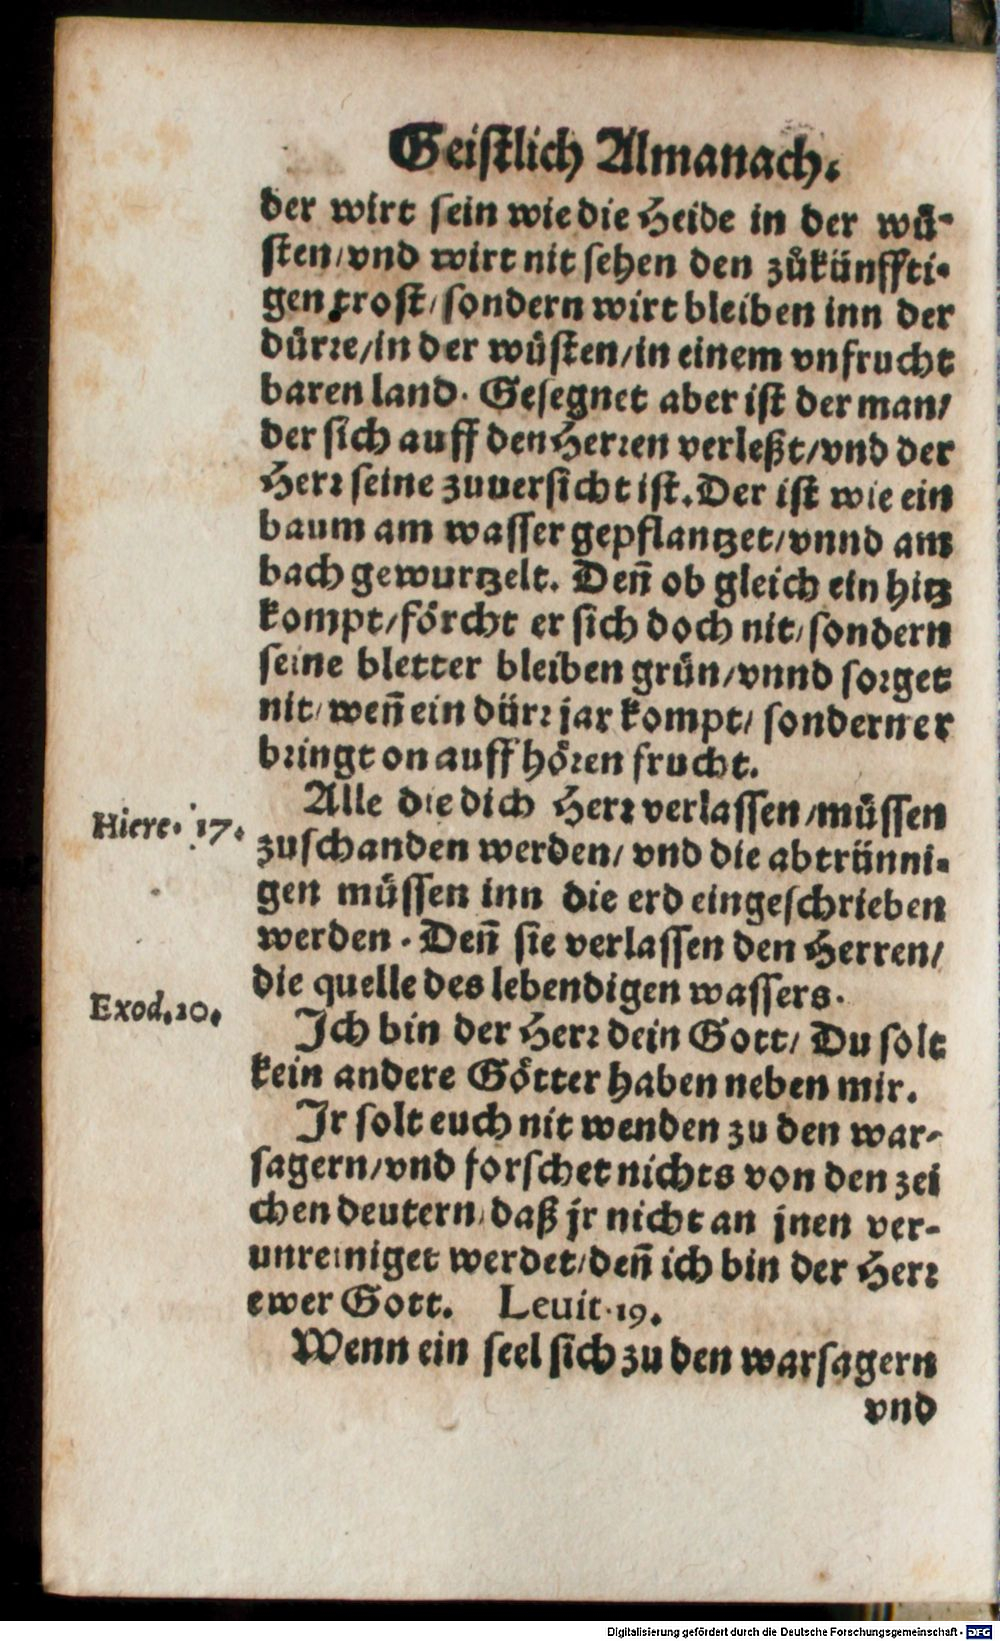 Geistlich Almanach.
der wirt sein wie die Heide in der wuͤ-
sten/vnd wirt nit sehen den zuͦkünffti-
gen trost/sondern wirt bleiben inn der
dürre/in der wuͤsten/in einem vnfrucht
baren land. Gesegnet aber ist der man/
der sich auff den Herren verleßt/vnd der
Herr seine zuuersicht ist. Der ist wie ein
baum am wasser gepflantzet/vnnd am
bach gewurtzelt. Deñ ob gleich ein hitz
kompt/foͤrcht er sich doch nit/sondern
seine bletter bleiben gruͤn/vnnd sorget
nit/weñ ein dürr jar kompt/sondern er
bringt on auff hoͤren frucht.
Hiere. 17.
Alle die dich Herr verlassen/muͤssen
zuschanden werden/vnd die abtrünni-
gen muͤssen inn die erd eingeschrieben
werden. Deñ sie verlassen den Herren/
die quelle des lebendigen wassers.
Exod.20.
Ich bin der Herr dein Gott/Du solt
kein andere Goͤtter haben neben mir.
Jr solt euch nit wenden zu den war-
sagern/vnd forschet nichts von den zei
chen deutern/daß jr nicht an jnen ver-
unreiniget werdet/deñ ich bin der Herr
ewer Gott. Leuit.19.
Wenn ein seel sich zu den warsagern
vnd
Digitalisierung gefördert durch die Deutsche Forschungsgemeinschaft - DFG